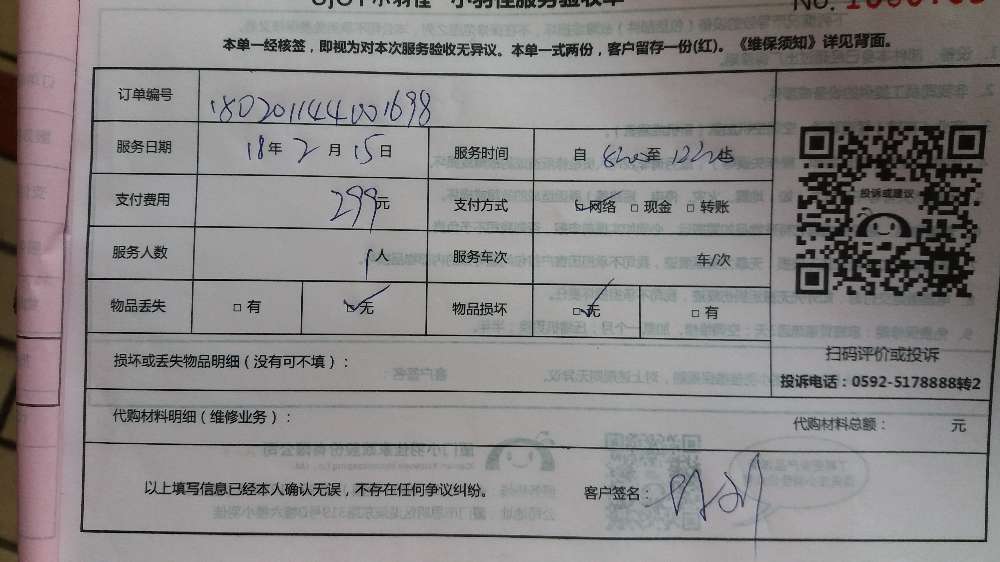 小羽佳 小羽佳服务验收单 No.
本单一经核签，即视为对本次服务验收无异议。本单一式两份，客户留存一份(红)。《维保须知》详见背面。
订单编号 180201144001698
服务日期 18年2月15日 服务时间 自 8:00 至 12:00 止
支付费用 299元 支付方式 ☑网络 □现金 □转账
服务人数 1人 服务车次 车/次
物品丢失 □有 ☑无 物品损坏 ☑无 □有
投诉或建议
扫码评价或投诉
投诉电话：0592-5178888转2
损坏或丢失物品明细（没有可不填）：
代购材料明细（维修业务）： 代购材料总额： 元
以上填写信息已经本人确认无误，不存在任何争议纠纷。 客户签名：